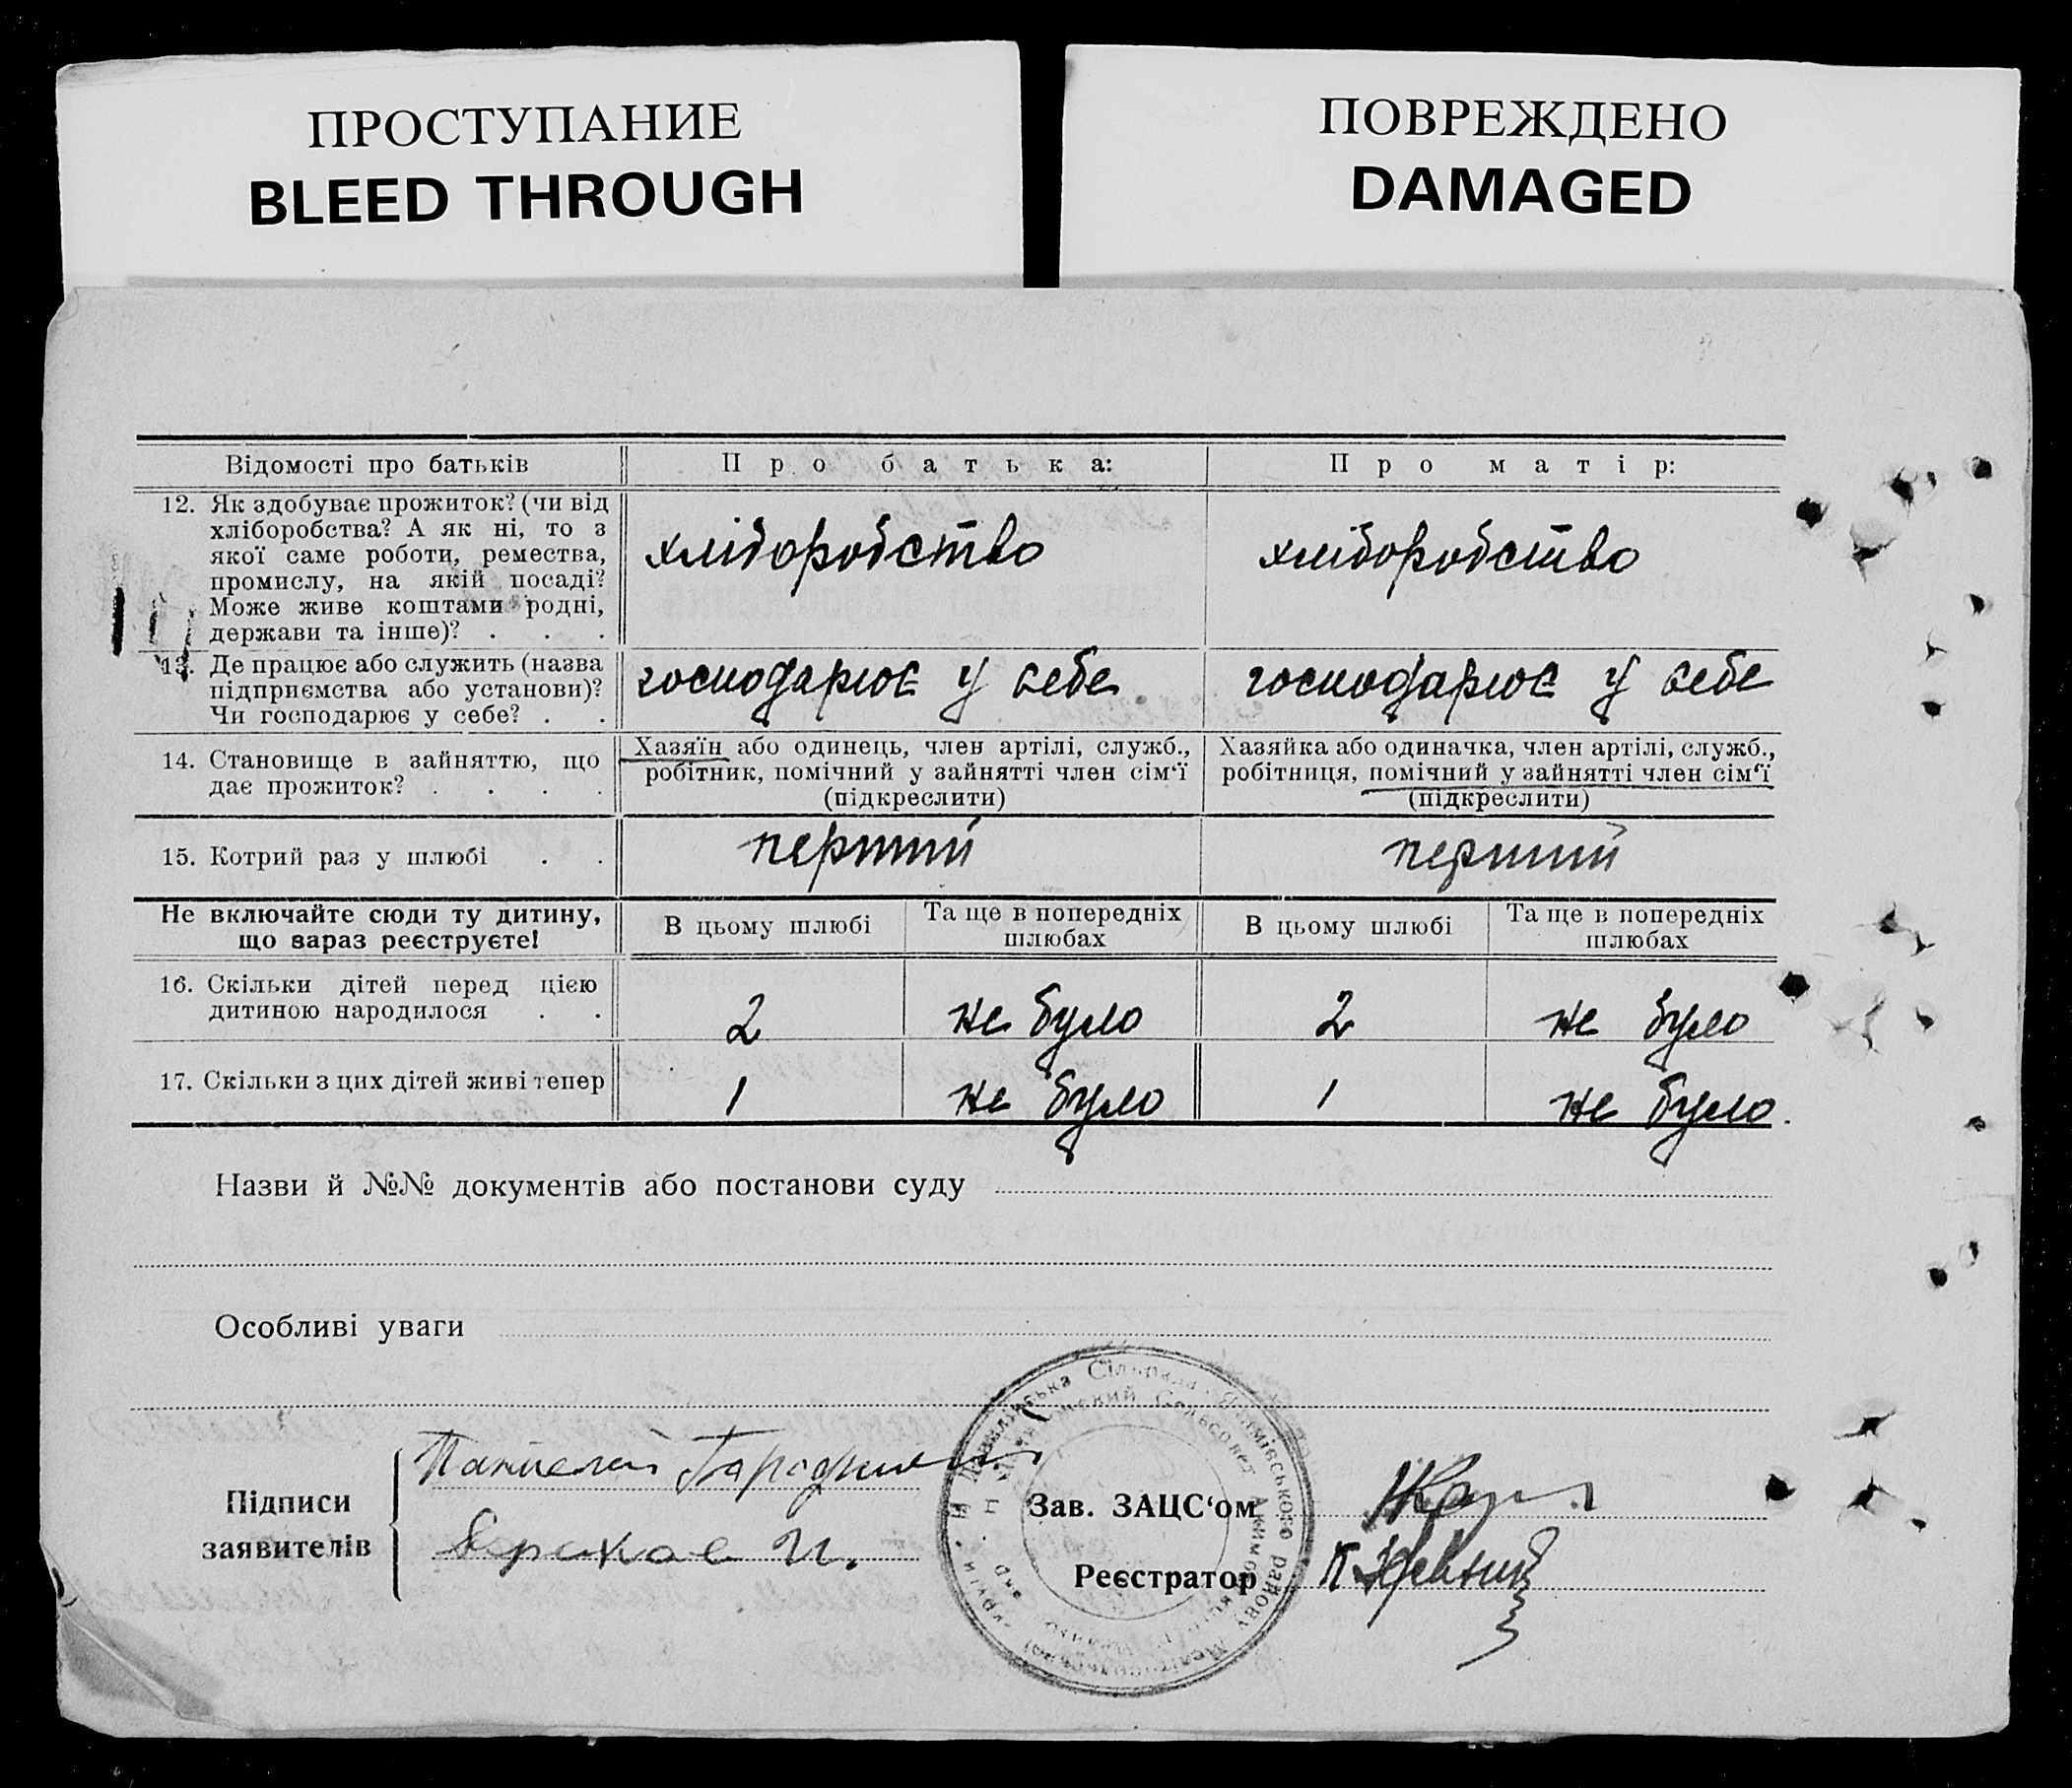 ПРОСТУПАНИЕ
BLEED THROUGH
ПОВРЕЖДЕНО
DAMAGED
Відомості про батьків
Про батька:
Про матір:
12. Як здобуває прожиток? (чи від
хліборобства? А як ні, то з
якої саме роботи, ремества,
промислу, на якій посаді?
Може живе коштами родні,
держави та інше)? . . .
хліборобство
хліборобство
13. Де працює або служить (назва
підприємства або установи)?
Чи господарює у себе? . .
господарює у себе
господарює у себе
14. Становище в зайняттю, що
дає прожиток? . . . .
Хазяїн або одинець, член артілі, служб.,
робітник, помічний у зайнятті член сім‘ї
(підкреслити)
Хазяйка або одиначка, член артілі, служб.,
робітниця, помічний у зайнятті член сім‘ї
(підкреслити)
15. Котрий раз у шлюбі . .
перший
перший
Не включайте сюди ту дитину,
що зараз реєструєте!
В цьому шлюбі
Та ще в попередніх
шлюбах
В цьому шлюбі
Та ще в попередніх
шлюбах
16. Скільки дітей перед цією
дитиною народилося . .
2
не було
2
не було
17. Скільки з цих дітей живі тепер
1
не було
1
не було.
Назви й №№ документів або постанови суду
Особливі уваги
Підписи
заявителів
Зав. ЗАЦС‘ом
Реєстратор
Сільрада Якимівського району
Сельсовет